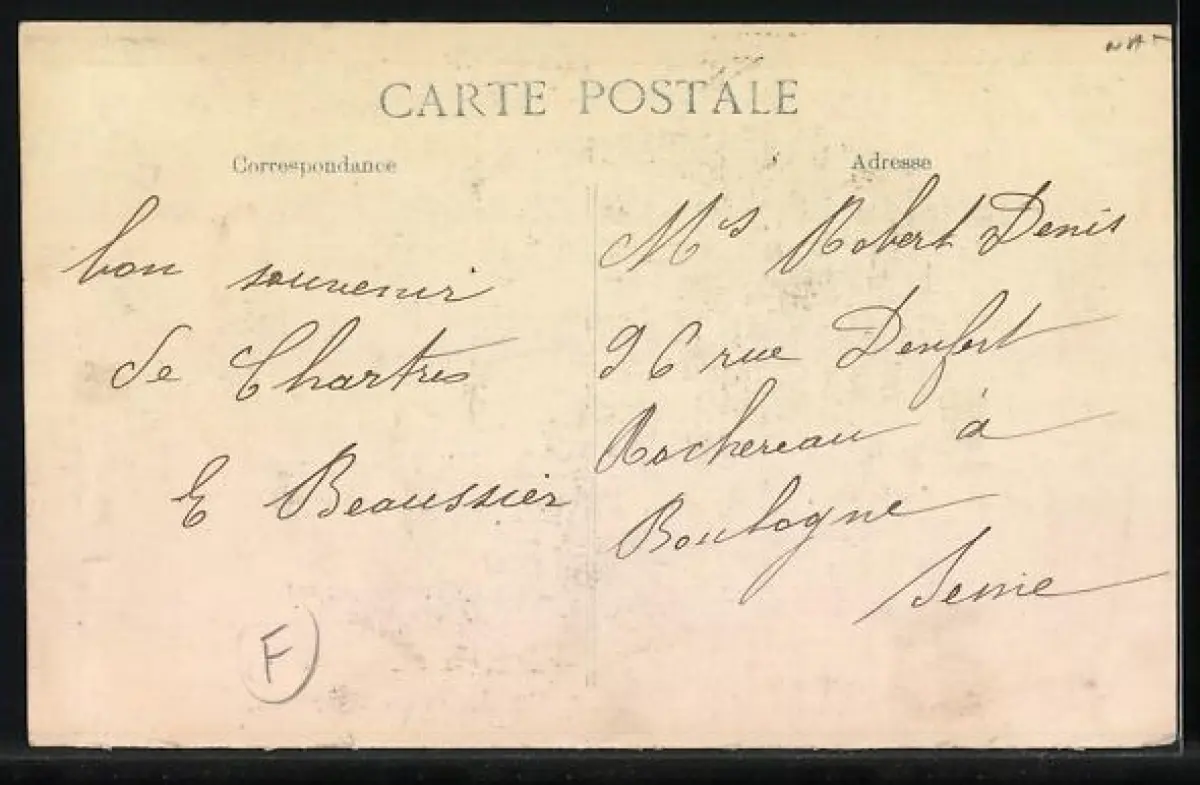 CARTE POSTALE
Correspondance
bon souvenir
de Chartres
E Beaussier
F
Adresse
Mrs Robert Denis
96 rue Denfert
Rochereau à
Boulogne
Seine